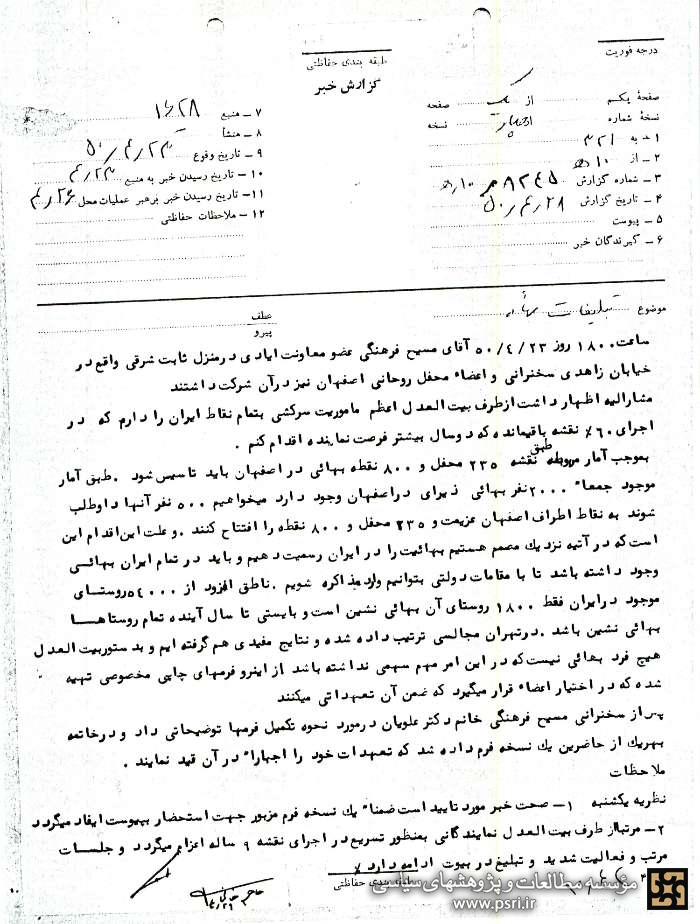 درجه فوریت
طبقه بندی حفاظتی
گزارش خبر
صفحهٔ یکم از یک صفحه
نسخهٔ شماره نسخه
۱ – به ۳۲۱
۲ – از ۱۰ه‍
۳ – شماره گزارش
۴ – تاریخ گزارش ۵۰/۴/۲۸
۵ – پیوست
۶ – گیرندگان خبر
۷ – منبع
۸ – منشأ
۹ – تاریخ وقوع ۵۰/۴/۲۳
۱۰ – تاریخ رسیدن خبر به منبع ۴/۲۳
۱۱ – تاریخ رسیدن خبر برهبر عملیات محل ۴/۲۶
۱۲ – ملاحظات حفاظتی
موضوع تبلیغات
عطف
پیرو
ساعت ۱۸۰۰ روز ۵۰/۴/۲۳ آقای مسیح فرهنگی عضو معاونت ایادی درمنزل ثابت شرقی واقع در
خیابان زاهدی سخنرانی و اعضاء محفل روحانی اصفهان نیز درآن شرکت داشتند
مشارالیه اظهار داشت ازطرف بیت العدل اعظم ماموریت سرکشی بتمام نقاط ایران را دارم که در
اجرای ۶۰٪ نقشه باقیمانده که دوسال بیشتر فرصت نمانده اقدام کنم .
بموجب آمار مربوطه طبق نقشه ۲۳۵ محفل و ۸۰۰ نقطه بهائی در اصفهان باید تاسیس شود . طبق آمار
موجود جمعا" ۲۰۰۰ نفر بهائی ذیرای دراصفهان وجود دارد میخواهیم ۵۰۰ نفر آنها داوطلب
شوند به نقاط اطراف اصفهان عزیمت و ۲۳۵ محفل و ۸۰۰ نقطه را افتتاح کنند . و علت این اقدام این
است که در آتیه نزدیک مصمم هستیم بهائیت را در ایران رسمیت دهیم و باید در تمام ایران بهائی
وجود داشته باشد تا با مقامات دولتی بتوانیم وارد مذاکره شویم . ناطق افزود از ۵۴۰۰۰ روستای
موجود درایران فقط ۱۸۰۰ روستای آن بهائی نشین است و بایستی تا سال آینده تمام روستاها
بهائی نشین باشد . درتهران مجالسی ترتیب داده شده و نتایج مفیدی هم گرفته ایم و بدستوربیت العدل
هیچ فرد بهائی نیست که در این امر مهم سهمی نداشته باشد از اینرو فرمهای چاپی مخصوصی تهیه
شده که در اختیار اعضاء قرار میگیرد که ضمن آن تعهداتی میکنند
پس از سخنرانی مسیح فرهنگی خانم دکتر علویان درمورد نحوه تکمیل فرمها توضیحاتی داد و درخاتمه
بهریک از حاضرین یک نسخه فرم داده شد که تعهدات خود را اجبارا" در آن قید نمایند .
ملاحظات
نظریه یکشنبه ۱– صحت خبر مورد تایید است ضمنا" یک نسخه فرم مزبور جهت استحضار بپیوست ایفاد میگردد
۲– مرتبا از طرف بیت العدل نمایندگانی بمنظور تسریع در اجرای نقشه ۹ ساله اعزام میگردد و جلسات
مرتب و فعالیت شدید و تبلیغ در بیوت ادامه دارد
طبقه بندی حفاظتی
موسسه مطالعات و پژوهشهای سیاسی
www.psri.ir